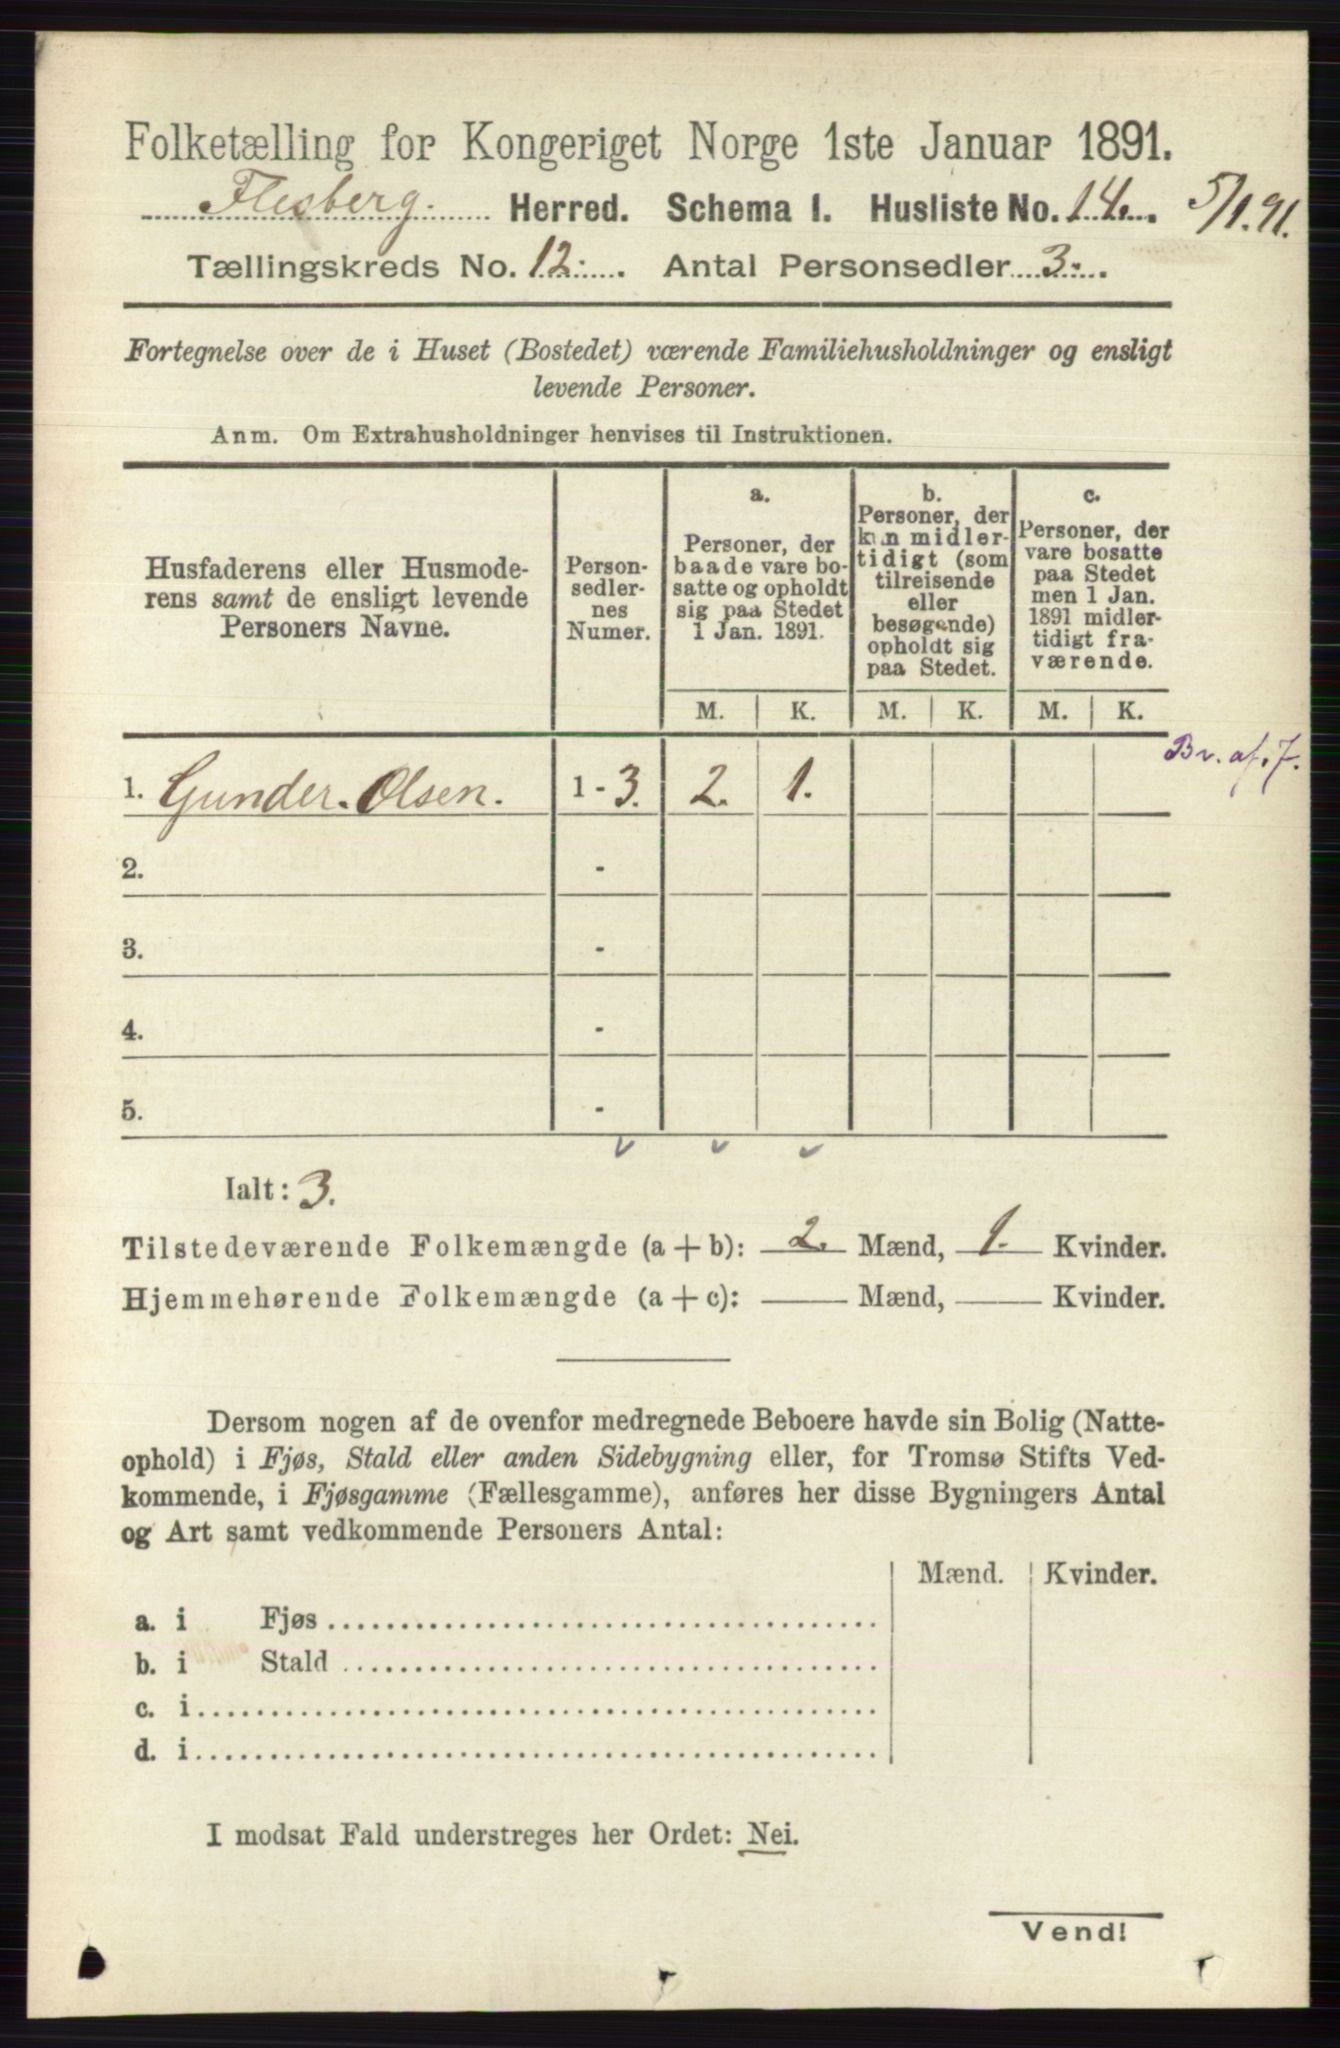 Folketælling for Kongeriget Norge 1ste Januar 1891.
Flesberg. Herred. Schema I. Husliste No. 14. 5/1.91.
Tællingskreds No. 12. Antal Personsedler 3.
Fortegnelse over de i Huset (Bostedet) værende Familiehusholdninger og ensligt
levende Personer.
Anm. Om Extrahusholdninger henvises til Instruktionen.
Husfaderens eller Husmode-
rens samt de ensligt levende
Personers Navne.
Person-
sedler-
nes
Numer.
a.
Personer, der
baade vare bo-
satte og opholdt
sig paa Stedet
1 Jan. 1891.
b.
Personer, der
kun midler-
tidigt (som
tilreisende
eller
besøgende)
opholdt sig
paa Stedet.
c.
Personer, der
vare bosatte
paa Stedet
men 1 Jan.
1891 midler-
tidigt fra-
værende.
M. K. M. K. M. K.
1. Gunder Olsen. 1 - 3. 2. 1. Br. af. 7.
2. -
3. -
4. -
5. -
Ialt: 3.
Tilstedeværende Folkemængde (a + b): 2. Mænd, 1. Kvinder.
Hjemmehørende Folkemængde (a + c): Mænd, Kvinder.
Dersom nogen af de ovenfor medregnede Beboere havde sin Bolig (Natte-
ophold) i Fjøs, Stald eller anden Sidebygning eller, for Tromsø Stifts Ved-
kommende, i Fjøsgamme (Fællesgamme), anføres her disse Bygningers Antal
og Art samt vedkommende Personers Antal:
Mænd. Kvinder.
a. i Fjøs
b. i Stald
c. i
d. i
I modsat Fald understreges her Ordet: Nei.
Vend!